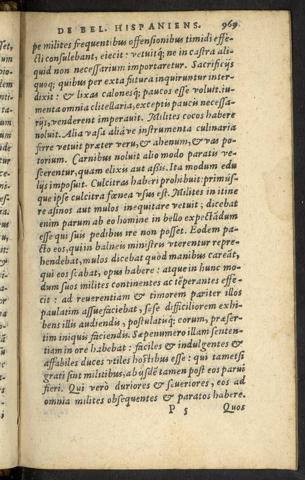 DE BEL. HISPANIENS. 969
pe milites frequentibus offensionibus timidi effe-
cti consulebant, eiecit: vetuitq́; ne in castra ali-
quid non necessarium importaretur. Sacrificijs
quoq; quibus per exta futura inquiruntur inter-
dixit: & lixas calonesq́; paucos esse voluit. iu-
menta omnia clitellaria, exceptis paucis necessa-
rijs, venderent imperauit. Milites cocos habere
noluit. Alia vasa aliáve instrumenta culinaria
ferre vetuit præter veru, & ahenum, & vas po-
torium. Carnibus noluit alio modo paratis ve-
scerentur, quam elixis aut assis. Ita modum edu
lijs imposuit. Culcitras haberi prohibuit: primus-
que ipse culcitra fœnea vsus est. Milites in itine
re asinos aut mulos inequitare vetuit; dicebat
enim parum ab eo homine in bello expectādum
esse qui suis pedibus ire non posset. Eodem pa-
cto eos, qui in balneis ministris vterentur repre-
hendebat, mulos dicebat quòd manibus careāt,
qui eos scabat, opus habere: atque in hunc mo-
dum suos milites continentes ac tēperantes effe-
cit: ad reuerentiam & timorem pariter illos
paulatim assuefaciebat, sese difficiliorem exhi-
bens illis audiendis, postulatiúq; eorum, præser-
tim iniquis faciendis. Sæpenumero illam senten-
tiam in ore habebat: faciles & indulgentes &
affabiles duces vtiles hostibus esse: qui tametsi
grati sint militibus, ab ijsdē tamen post eos parui
fieri. Qui verò duriores & seueriores, eos ad
omnia milites obsequentes & paratos habere.
P 5 Quos